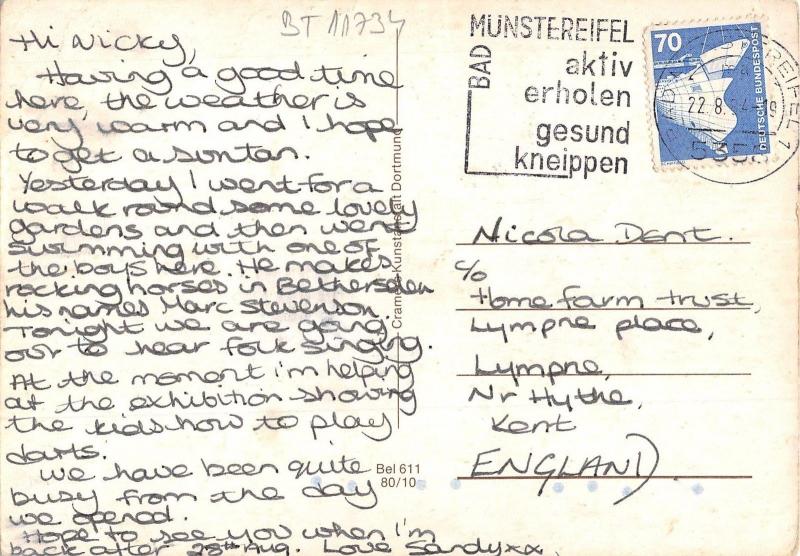 BT 11734
Hi Nicky,
Having a good time
here, the weather is
very warm and I hope
to get a suntan.
Yesterday I went for a
walk round some lovely
gardens and then went
swimming with one of
the boys here. He makes
rocking horses in Bethersden
his names Marc Stevenson.
Tonight we are going
out to hear folk singing.
At the moment i'm helping
at the exhibition showing
the kids how to play
darts.
We have been quite
busy from the day
we opened.
Hope to see you when I'm
back after 28th Aug. Love Sandy xx
Cramers Kunstanstalt Dortmund
Bel 611
80/10
BAD
MÜNSTEREIFEL
aktiv
erholen
gesund
kneippen
70
DEUTSCHE BUNDESPOST
22.8.84
Nicola Dent.
c/o
Home farm trust,
Lympne place,
Lympne,
Nr Hythe,
Kent
ENGLAND